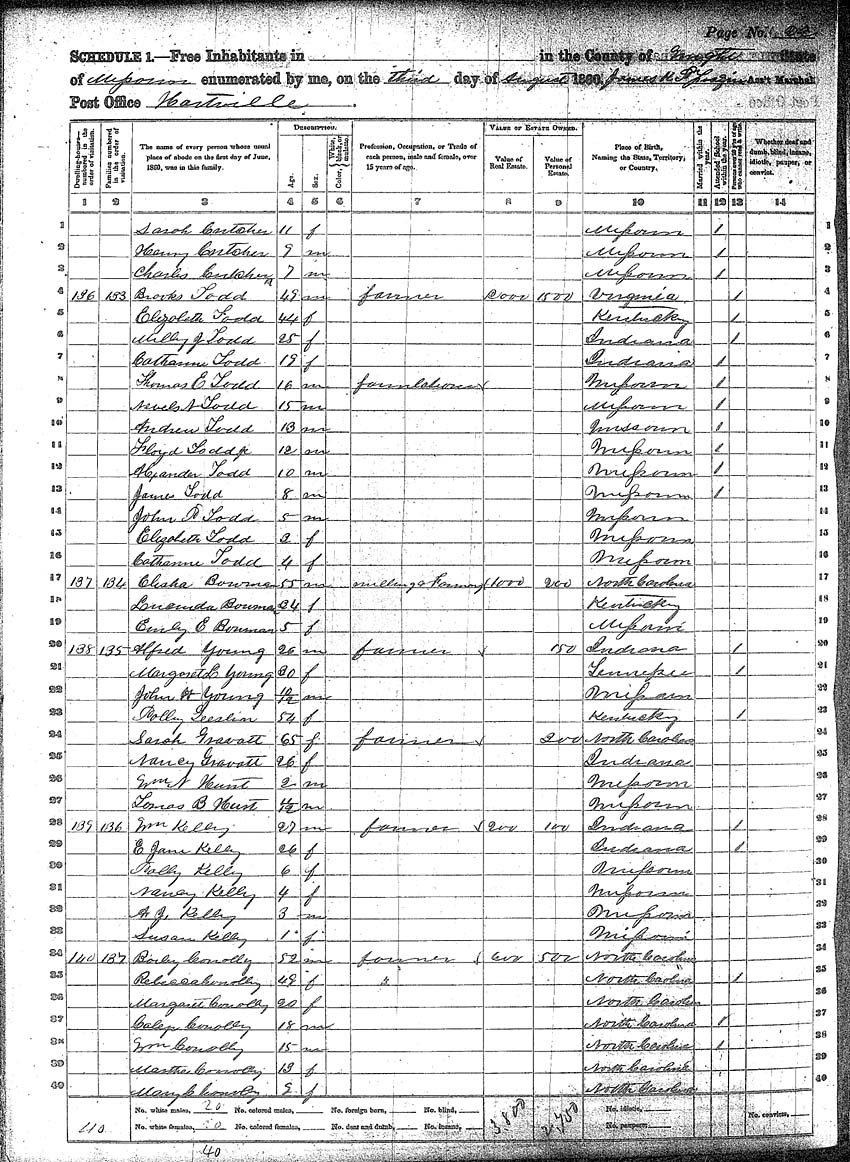 Page No.
SCHEDULE 1.—Free Inhabitants in in the County of Wright State
of Missouri enumerated by me, on the third day of August 1860. James H. Ass't Marshal
Post Office Hartville
Dwelling-houses—numbered in the order of visitation.
Families numbered in the order of visitation.
The name of every person whose usual place of abode on the first day of June, 1860, was in this family.
DESCRIPTION.
Age.
Sex.
Color, White, black, or mulatto.
Profession, Occupation, or Trade of each person, male and female, over 15 years of age.
VALUE OF ESTATE OWNED.
Value of Real Estate.
Value of Personal Estate.
Place of Birth, Naming the State, Territory, or Country.
Married within the year.
Attended School within the year.
Persons over 20 y'rs of age who cannot read & write.
Whether deaf and dumb, blind, insane, idiotic, pauper, or convict.
1 2 3 4 5 6 7 8 9 10 11 12 13 14
1 Sarah Crutcher 11 f Missouri 1 1
2 Henry Crutcher 9 m Missouri 1 2
3 Charles Crutcher 7 m Missouri 1 3
4 136 133 Brooks Todd 49 m farmer 1500 Virginia 1 4
5 Elizabeth Todd 44 f Kentucky 1 5
6 Milly J Todd 25 f Indiana 1 6
7 Catharine Todd 19 f Indiana 1 7
8 Thomas E Todd 16 m farm laborer Missouri 1 8
9 N Todd 15 m Missouri 1 9
10 Andrew Todd 13 m Missouri 1 10
11 Floyd Todd jr 12 m Missouri 1 11
12 Alexander Todd 10 m Missouri 1 12
13 James Todd 8 m Missouri 1 13
14 John R Todd 5 m Missouri 14
15 Elizabeth Todd 2 f Missouri 15
16 Catharine Todd 4 f Missouri 16
17 137 134 Elisha Bowman 55 m milling & Farming 1000 200 North Carolina 17
18 Lucinda Bowman 34 f Kentucky 18
19 Emily E Bowman 5 f Missouri 19
20 138 135 Alfred Young 26 m farmer 150 Indiana 1 20
21 Margaret L Young 30 f Tennessee 1 21
22 John W Young 10/12 m Missouri 22
23 Polly 54 f Kentucky 1 23
24 Sarah Gravatt 65 f farmer 200 North Carolina 24
25 Nancy Gravatt 26 f Indiana 25
26 Wm N Hunt 2 m Missouri 26
27 Tomas B Hunt 4/12 m Missouri 27
28 139 136 Wm Kelly 27 m farmer 200 100 Indiana 1 28
29 E Jane Kelly 26 f Indiana 1 29
30 Polly Kelly 6 f Missouri 30
31 Nancy Kelly 4 f Missouri 31
32 A J. Kelly 3 m Missouri 32
33 Susan Kelly 1 f Missouri 33
34 140 137 Conolly 52 m farmer 600 500 North Carolina 34
35 Rebecca Conolly 49 f North Carolina 1 35
36 Margaret Conolly 20 f North Carolina 36
37 Conolly 18 m North Carolina 1 37
38 Wm Conolly 15 m North Carolina 1 38
39 Martha Conolly 13 f North Carolina 39
40 Mary C Conolly 9 f North Carolina 40
No. white males, 20 No. colored males, No. foreign born, No. blind, 3,800 2,700 No. idiotic, No. convicts,
No. white females, 20 No. colored females, No. deaf and dumb, No. insane, No. paupers,
40